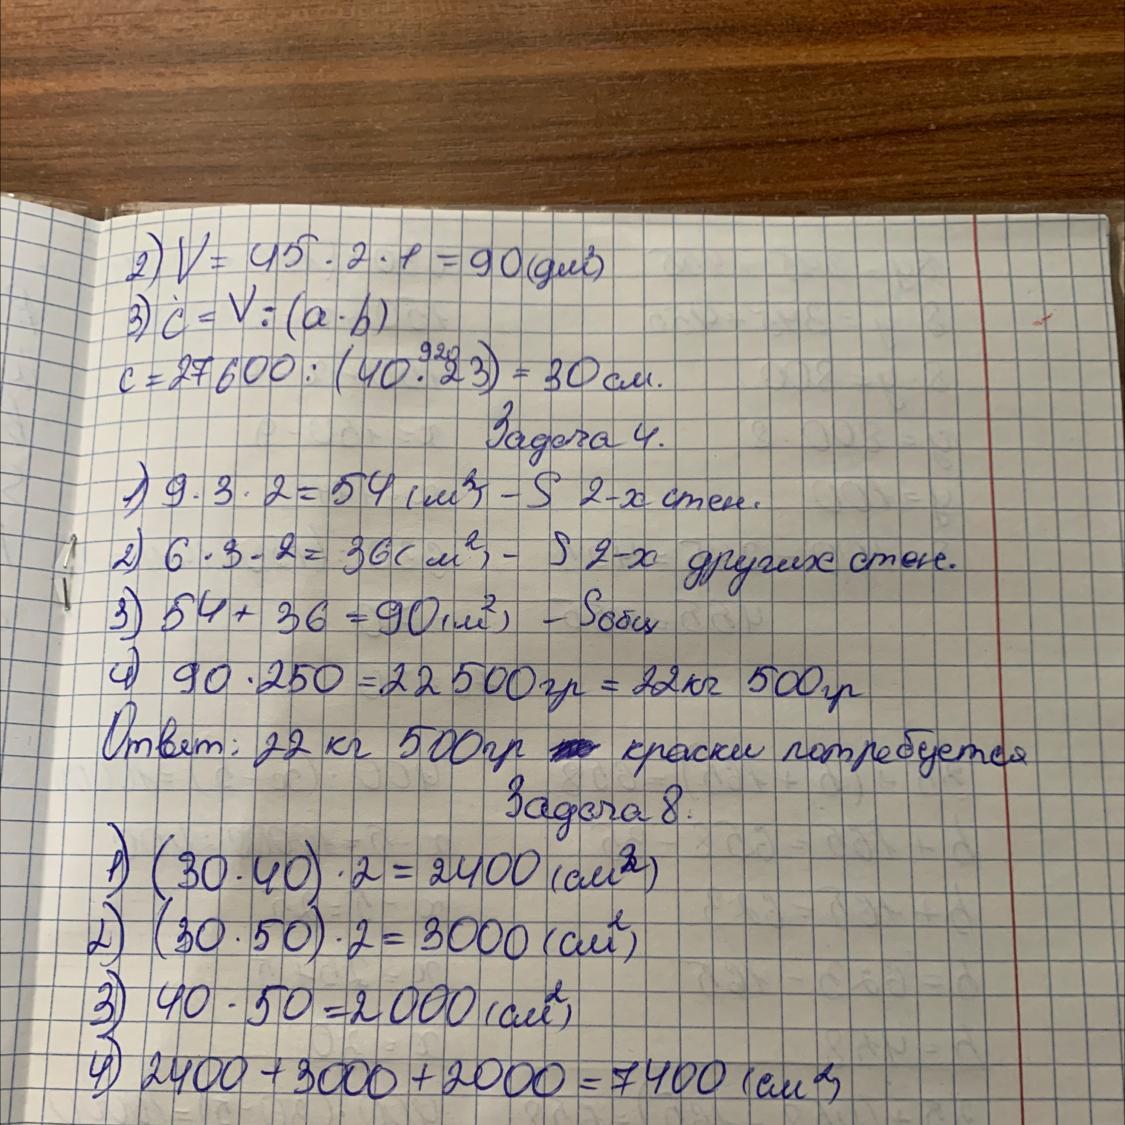 2) V = 45 · 2 · 1 = 90 (дм³)
3) c = V : (a · b)
920
c = 27600 : (40 · 23) = 30 см.
Задача 4.
1) 9 · 3 · 2 = 54 (м²) – S 2-х стен.
2) 6 · 3 · 2 = 36 (м²) – S 2-х других стен.
3) 54 + 36 = 90 (м²) – Sобщ
4) 90 · 250 = 22 500 гр = 22 кг 500 гр
Ответ: 22 кг 500 гр краски потребуется
Задача 8.
1) (30 · 40) · 2 = 2400 (см²)
2) (30 · 50) · 2 = 3000 (см²)
3) 40 · 50 = 2000 (см²)
4) 2400 + 3000 + 2000 = 7400 (см²)